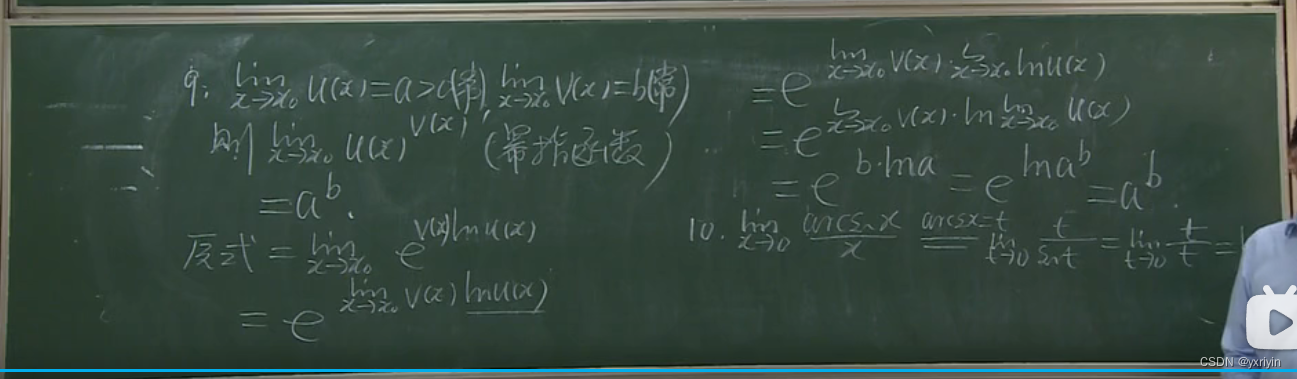 9. lim x→x₀ u(x)=a>0(常), lim x→x₀ v(x)=b(常)
则 lim x→x₀ u(x)^v(x) (幂指函数)
=a^b.
反式 = lim x→x₀ e^(v(x)lnu(x))
= e^(lim x→x₀ v(x) lnu(x))
= e^(lim x→x₀ v(x)·lim x→x₀ lnu(x))
= e^(lim x→x₀ v(x)·ln lim x→x₀ u(x))
= e^(b·lna) = e^(lna^b) = a^b.
10. lim x→0 arcsinx/x arcsx=t lim t→0 t/sint = lim t→0 t/t =
CSDN @yxriyin